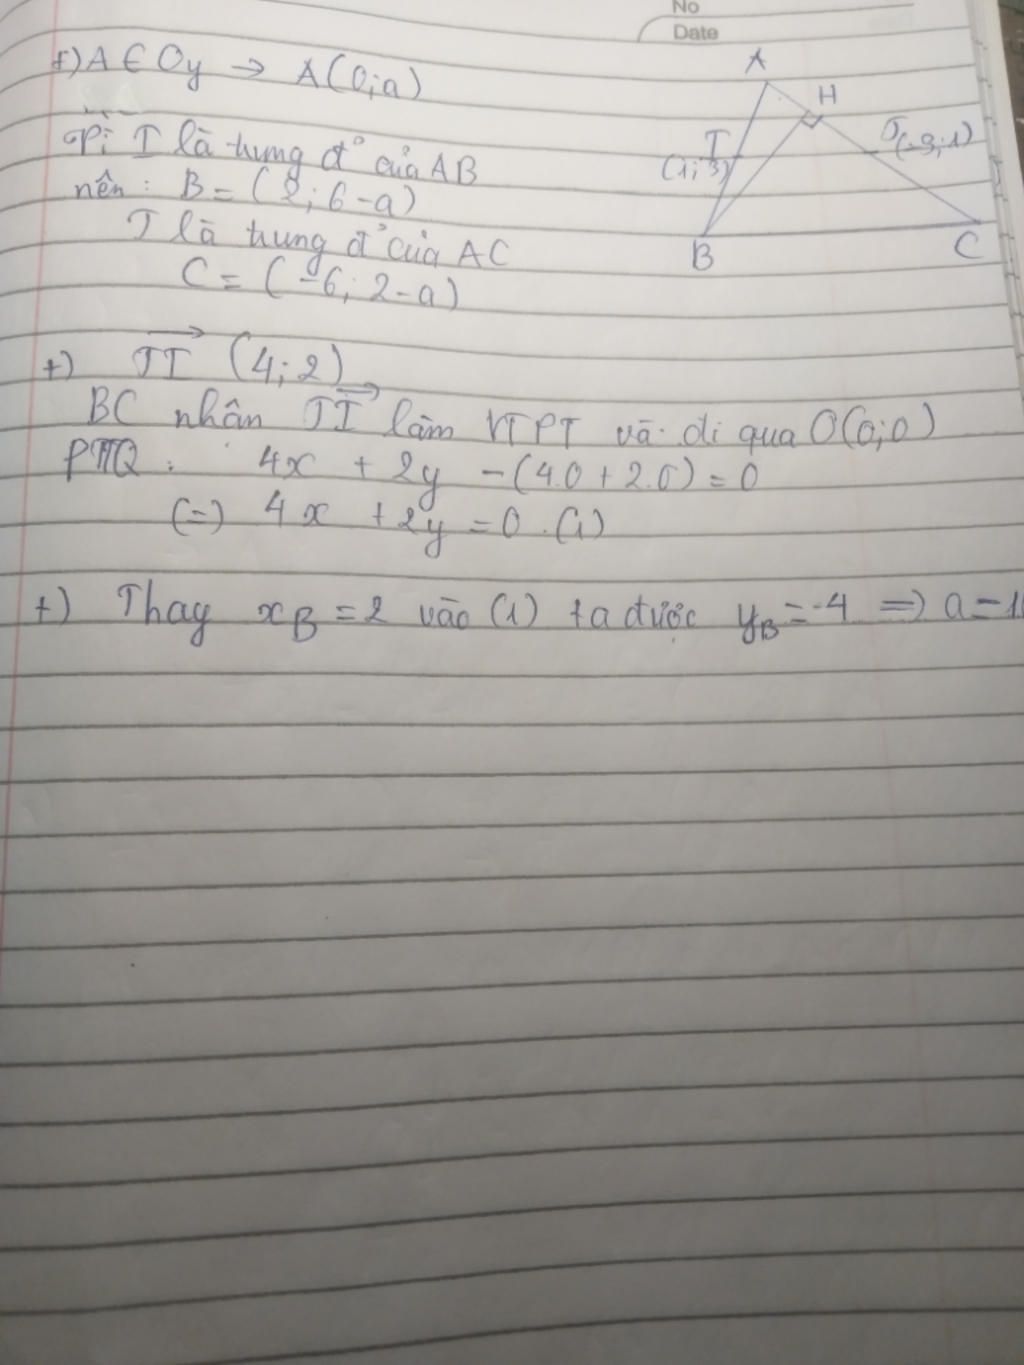 No
Date
+) A ∈ Oy → A(0;a)
Vì I là trung đ' của AB
nên: B = (2; 6-a)
J là trung đ' của AC
C = (-6; 2-a)
A
H
I
(1; 3)
J(-3; 1)
B
C
+) JI (4; 2)
BC nhân JI làm VTPT và đi qua O(0;0)
PTTQ: 4x + 2y -(4.0 + 2.0) = 0
(=) 4x + 2y = 0 . (1)
+) Thay xB = 2 vào (1) ta được yB = -4 => a = 1